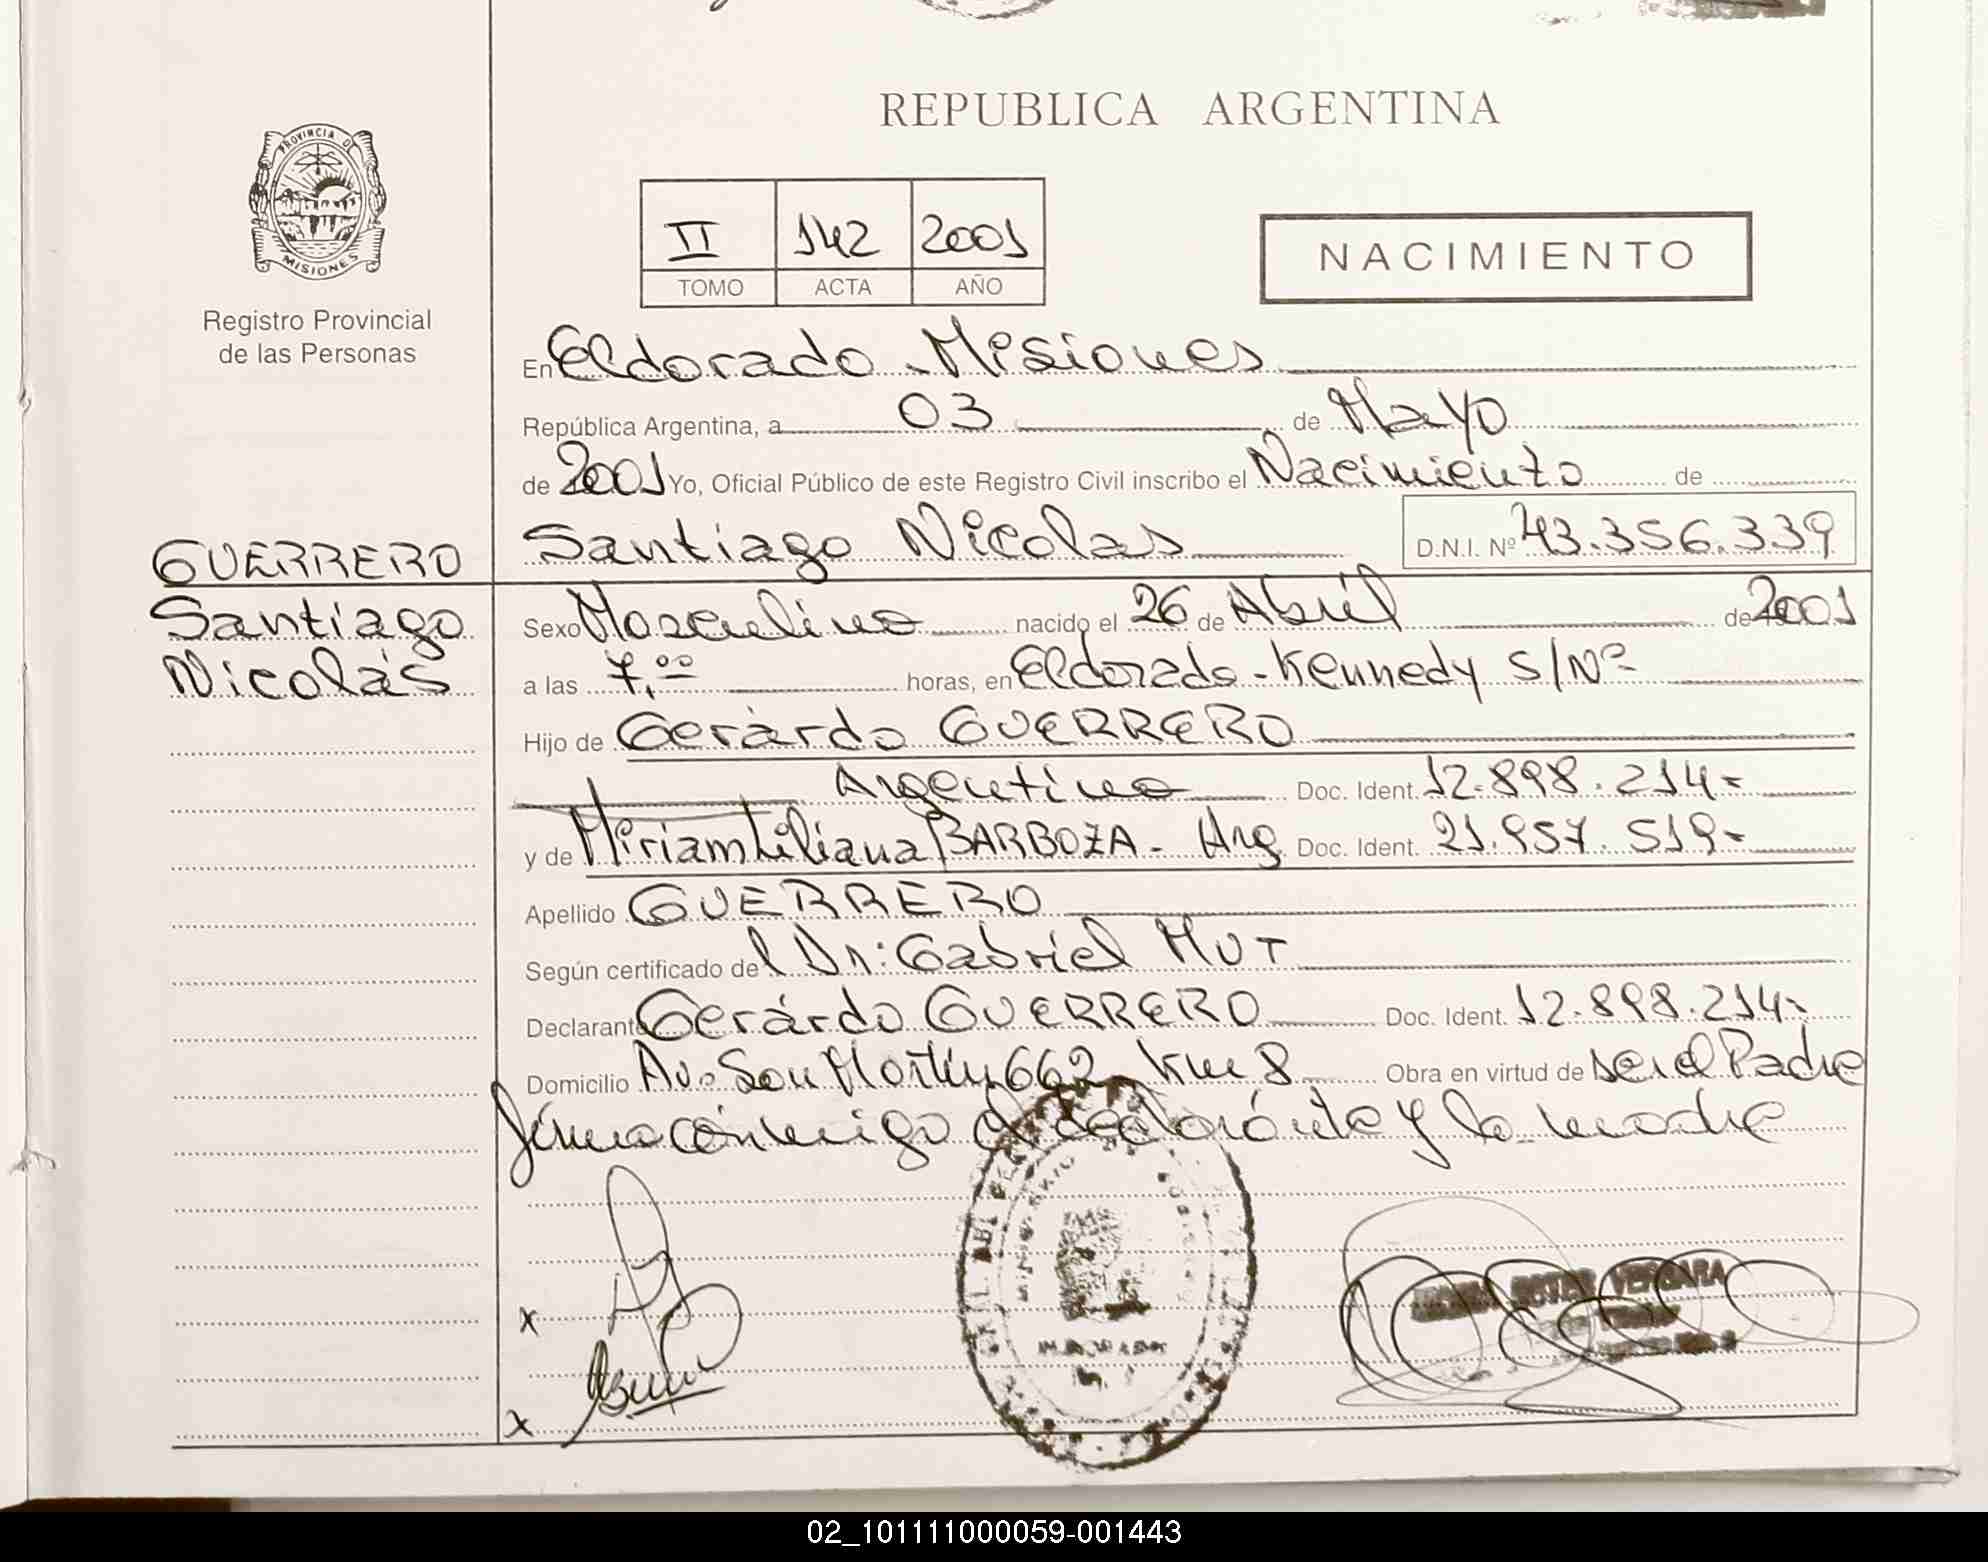 REPUBLICA ARGENTINA
PROVINCIA D
MISIONES
Registro Provincial
de las Personas
II 142 2001
TOMO ACTA AÑO
NACIMIENTO
En Eldorado - Misiones
República Argentina, a 03 de Mayo
de 2001 Yo, Oficial Público de este Registro Civil inscribo el Nacimiento de
GUERRERO
Santiago
Nicolás
Santiago Nicolas D.N.I. Nº 43.356.339
Sexo Masculino nacido el 26 de Abril de 2001
a las 7,00 horas, en Eldorado - Kennedy S/Nº
Hijo de Gerardo GUERRERO
Argentino Doc. Ident. 12.898.214=
y de Miriam Liliana BARBOZA - Arg. Doc. Ident. 21.957.519-
Apellido GUERRERO
Según certificado del Dr: Gabriel MUT
Declarante Gerardo GUERRERO Doc. Ident. 12.898.214-
Domicilio Av. San Martín 662 Km 8 Obra en virtud de ser el Padre
firma conmigo el declarante y la madre
x
x
VERGARA
02_101111000059-001443